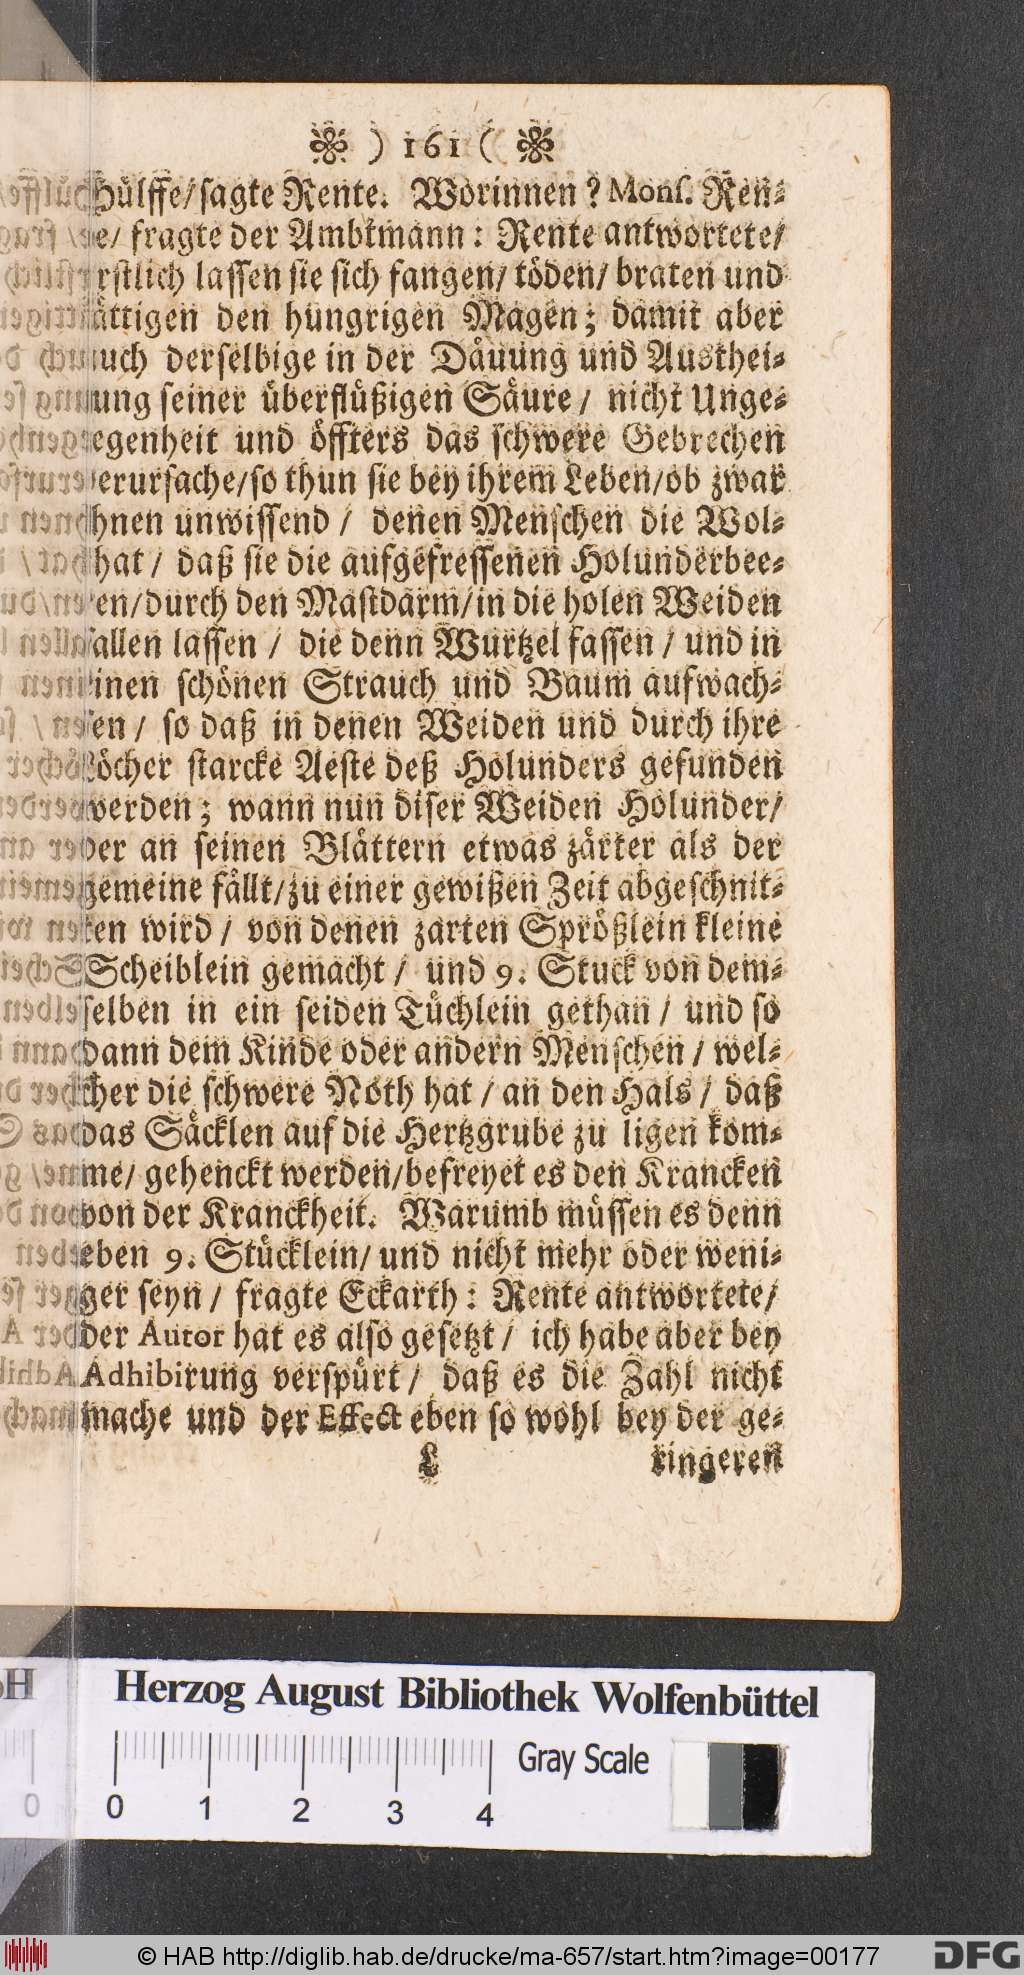 ) 161 (
Hülffe/ sagte Rente. Worinnen? Mons. Ren-
te/ fragte der Ambtmann: Rente antwortete/
Erstlich lassen sie sich fangen/ töden/ braten und
sättigen den hungrigen Magen; damit aber
auch derselbige in der Däuung und Austhei-
lung seiner überflüßigen Säure/ nicht Unge-
legenheit und öffters das schwere Gebrechen
verursache/ so thun sie bey ihrem Leben/ ob zwar
ihnen unwissend/ denen Menschen die Wol-
that/ daß sie die aufgefressenen Holunderbee-
ren/ durch den Mastdarm/ in die holen Weiden
fallen lassen/ die denn Wurtzel fassen/ und in
einen schönen Strauch und Baum aufwach-
sen/ so daß in denen Weiden und durch ihre
Löcher starcke Aeste deß Holunders gefunden
werden; wann nun diser Weiden Holunder/
der an seinen Blättern etwas zärter als der
gemeine fällt/ zu einer gewißen Zeit abgeschnit-
ten wird/ von denen zarten Sprößlein kleine
Scheiblein gemacht/ und 9. Stuck von dem-
selben in ein seiden Tüchlein gethan/ und so
dann dem Kinde oder andern Menschen/ wel-
cher die schwere Noth hat/ an den Hals/ daß
das Säcklen auf die Hertzgrube zu ligen kom-
me/ gehenckt werden/ befreyet es den Krancken
von der Kranckheit. Warumb müssen es denn
eben 9. Stücklein/ und nicht mehr oder weni-
ger seyn/ fragte Eckarth: Rente antwortete/
der Autor hat es also gesetzt/ ich habe aber bey
Adhibirung verspürt/ daß es die Zahl nicht
mache und der Effect eben so wohl bey der ge-
L ringeren
Herzog August Bibliothek Wolfenbüttel
Gray Scale
0 0 1 2 3 4
© HAB http://diglib.hab.de/drucke/ma-657/start.htm?image=00177
DFG